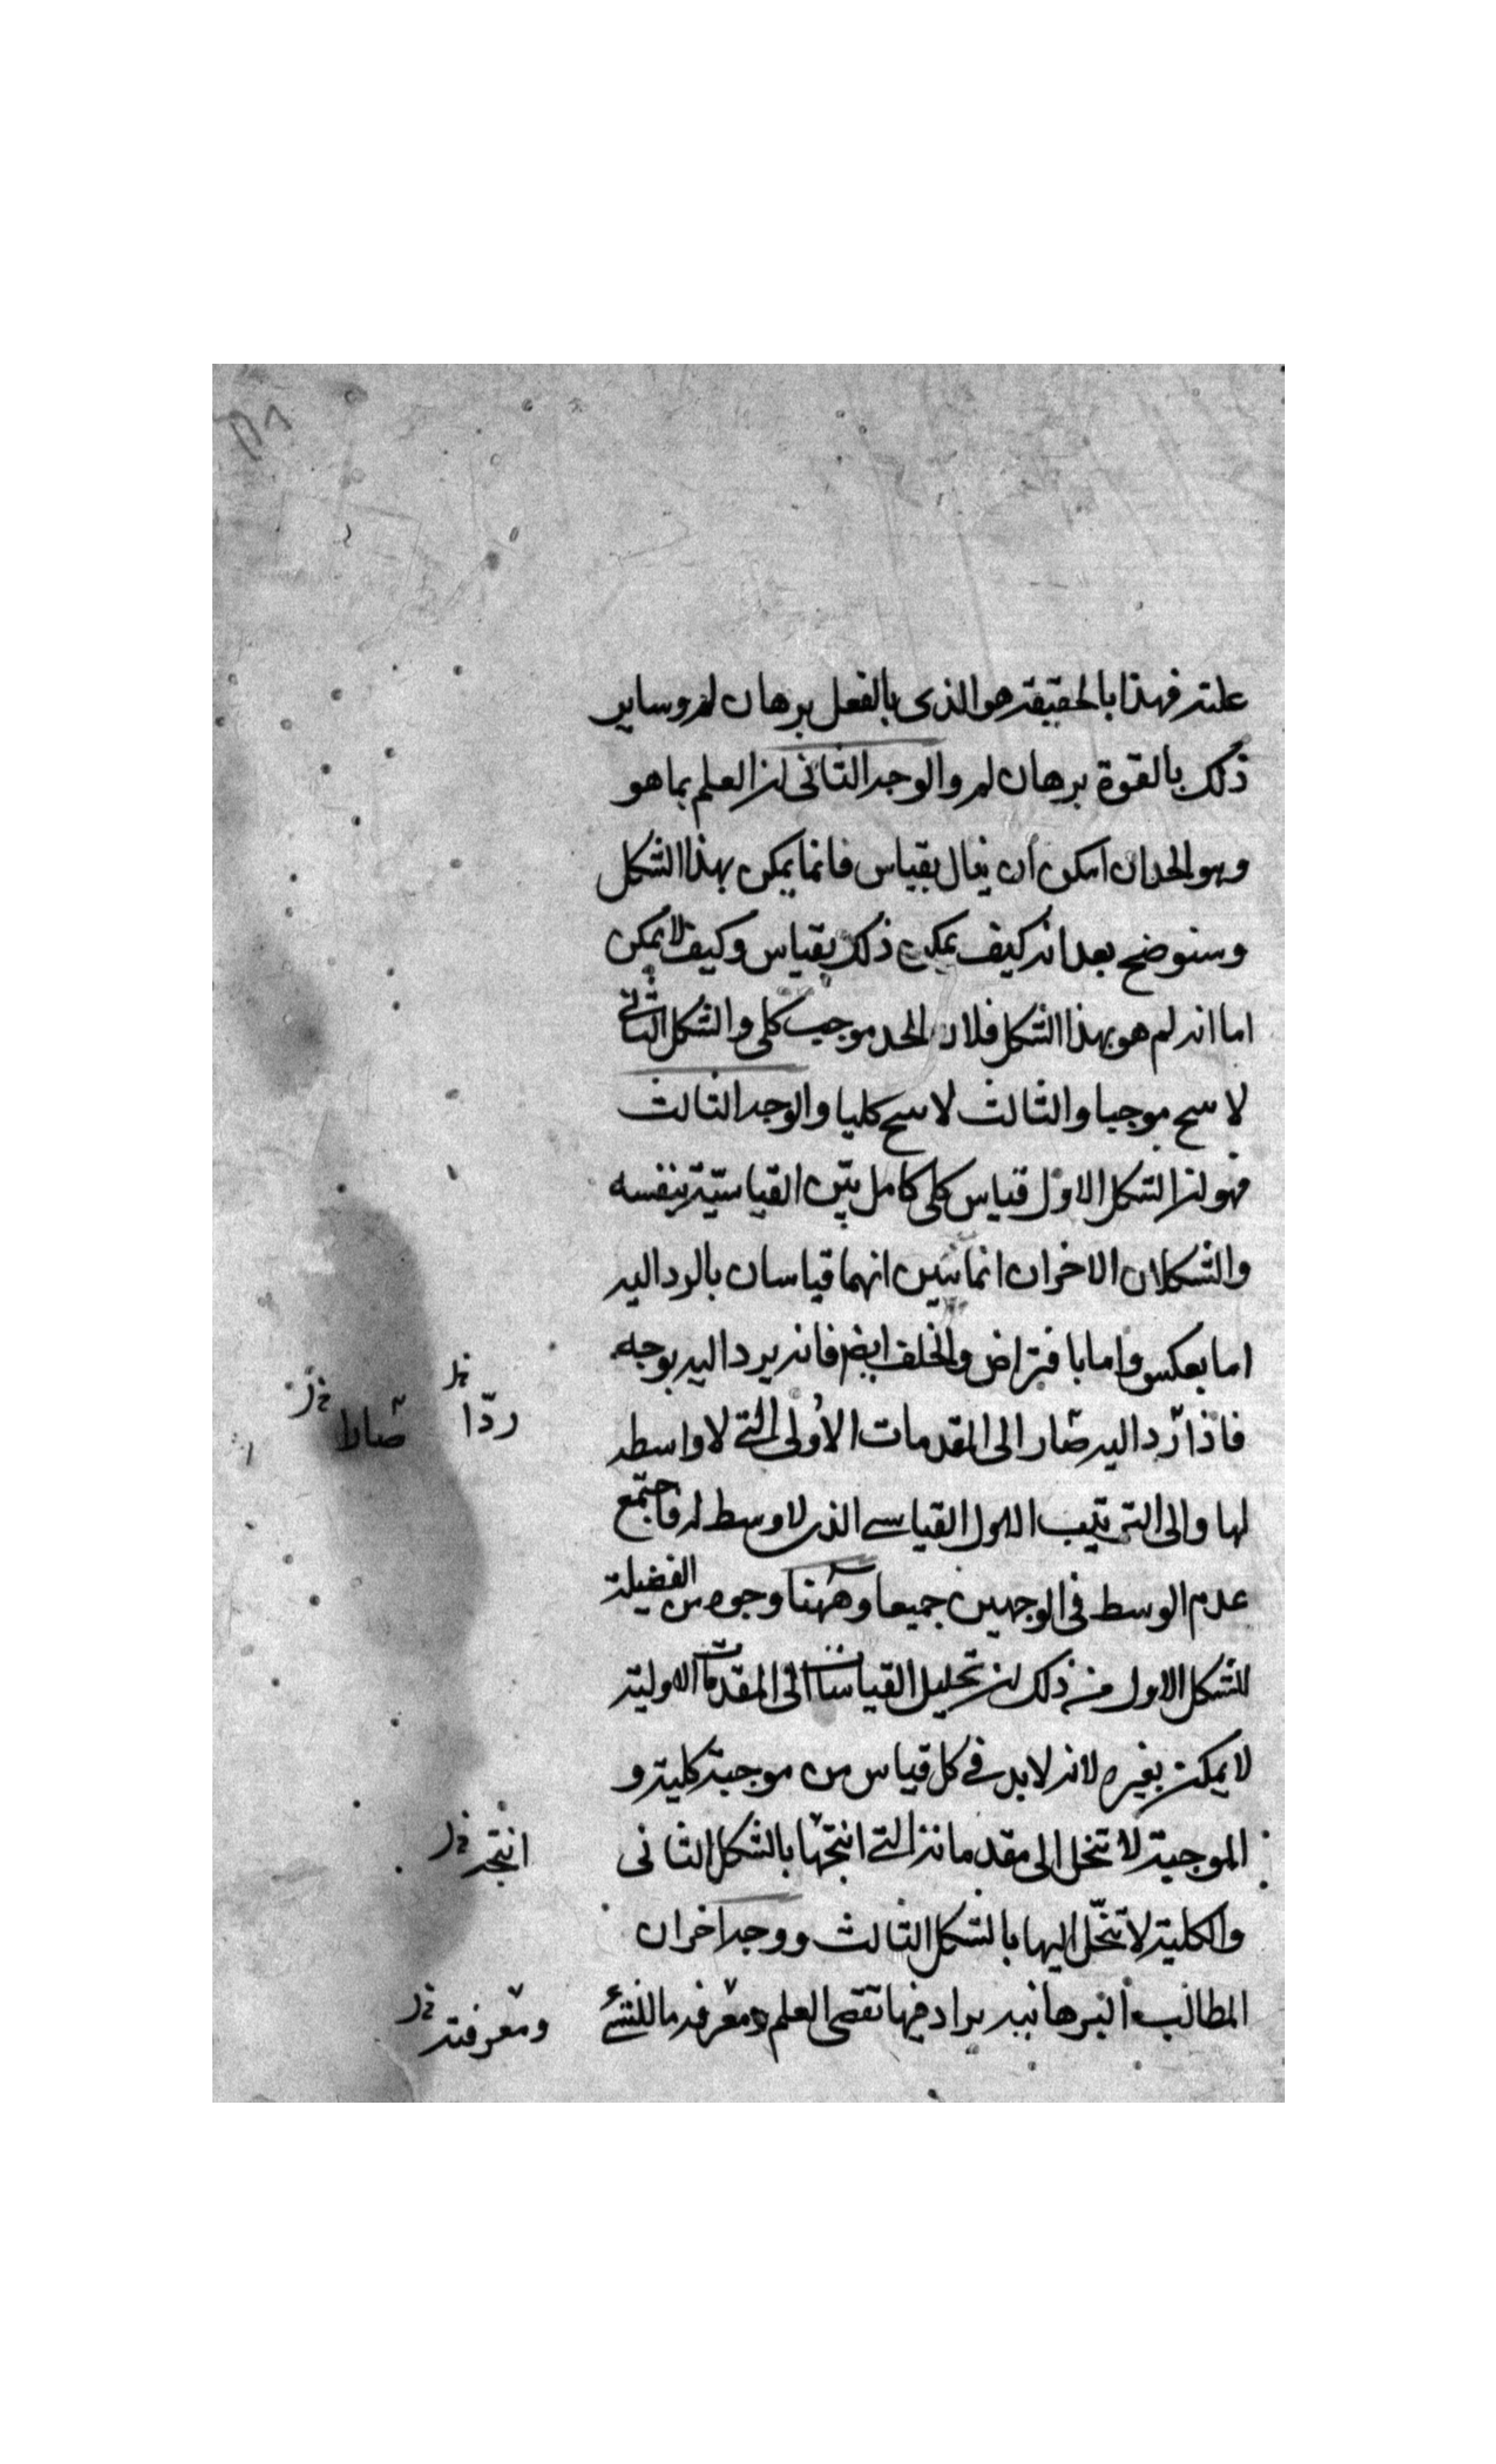 علته فهذا بالحقيقة هو الذى بالفعل برهان لم وساير
ذلك بالقوة برهان لم والوجه الثانى ان العلم بما هو
وهو الحد ان امكن ان ينال بقياس فانما يمكن بهذا الشكل
وسنوضح بعد انه كيف يمكن ذلك بقياس وكيف لا يمكن
اما انه لم هو بهذا الشكل فلان الحد موجب كلى والشكل الثانى
لا ينتج موجبا والثالث لا ينتج كليا والوجه الثالث
فهو ان الشكل الاول قياس كلى كامل بيّن القياسيّة بنفسه
والشكلان الاخران انما تبين انهما قياسان بالرد اليه
اما بعكس واما بافتراض والخلف ايضا فانه يرد اليه بوجه
فاذا رد اليه صار الى المقدمات الأولى التى لا واسطه
لها والى الترتيب الاول القياسى الذى لا وسط له فاجتمع
عدم الوسط فى الوجهين جميعا وههنا وجوه من الفضيلة
للشكل الاول من ذلك ان تحليل القياسات الى المقدمات الاولية
لا يمكن بغيره لانه لا بد فى كل قياس من موجبة كلية و
الموجبة لا تنحل الى مقدماتنا التى انتجتها بالشكل الثانى
والكلية لا تنحّل اليها بالشكل الثالث ووجه اخر ان
المطالب البرهانيه يراد فيها تقصى العلم ومعرفه ما للشئ
ردّا
صارا
انتجه
ومعرفته